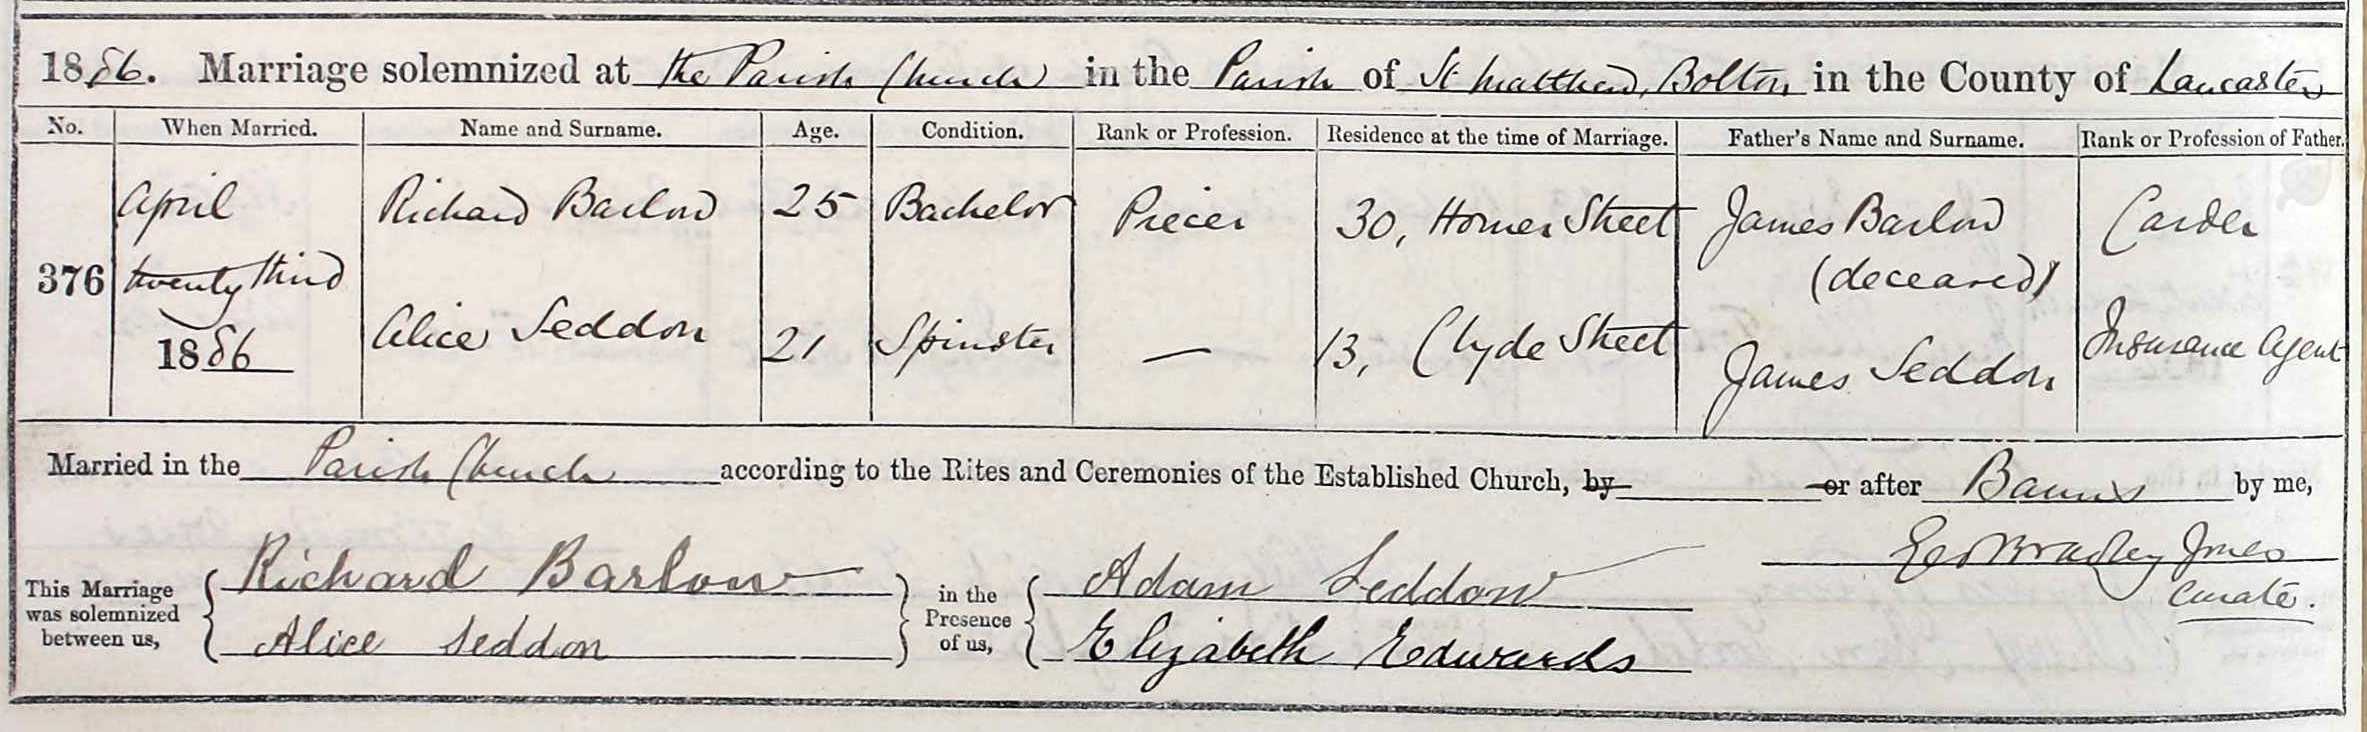 1886. Marriage solemnized at the Parish Church in the Parish of St Matthew, Bolton in the County of Lancaster
No. When Married. Name and Surname. Age. Condition. Rank or Profession. Residence at the time of Marriage. Father's Name and Surname. Rank or Profession of Father.
April Richard Barlow 25 Bachelor Piecer 30, Homer Street James Barlow Carder
376 twenty third (deceased)
1886 Alice Seddon 21 Spinster — 13, Clyde Street James Seddon Insurance Agent
Married in the Parish Church according to the Rites and Ceremonies of the Established Church, by or after Banns by me,
Richard Barlow Adam Seddon Bradley Jones
This Marriage was solemnized between us, in the Presence of us, Curate.
Alice Seddon Elizabeth Edwards